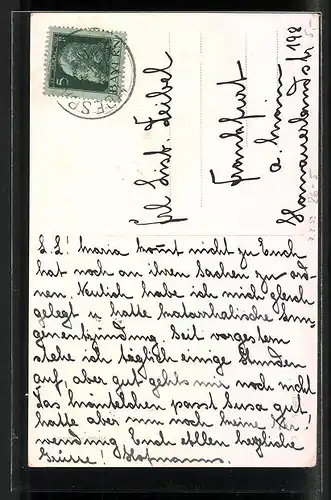 BAYERN
5
Frl. Lust. Zeibel
Frankfurt
a. Main
Hanauerlandstr. 198
L. L.! Maria kommt nicht zu Euch
hat noch an ihren Sachen zu ord-
nen. Neulich habe ich mich gleich
gelegt u. hatte katarrhalische Lun-
genentzündung. Seit vorgestern
stehe ich täglich einige Stunden
auf, aber gut geht's mir noch nicht
Das Mäntelchen passt Susa gut
hatte aber nun noch keine Ver-
wendung Euch allen herzliche
Grüsse! Hofmanns.